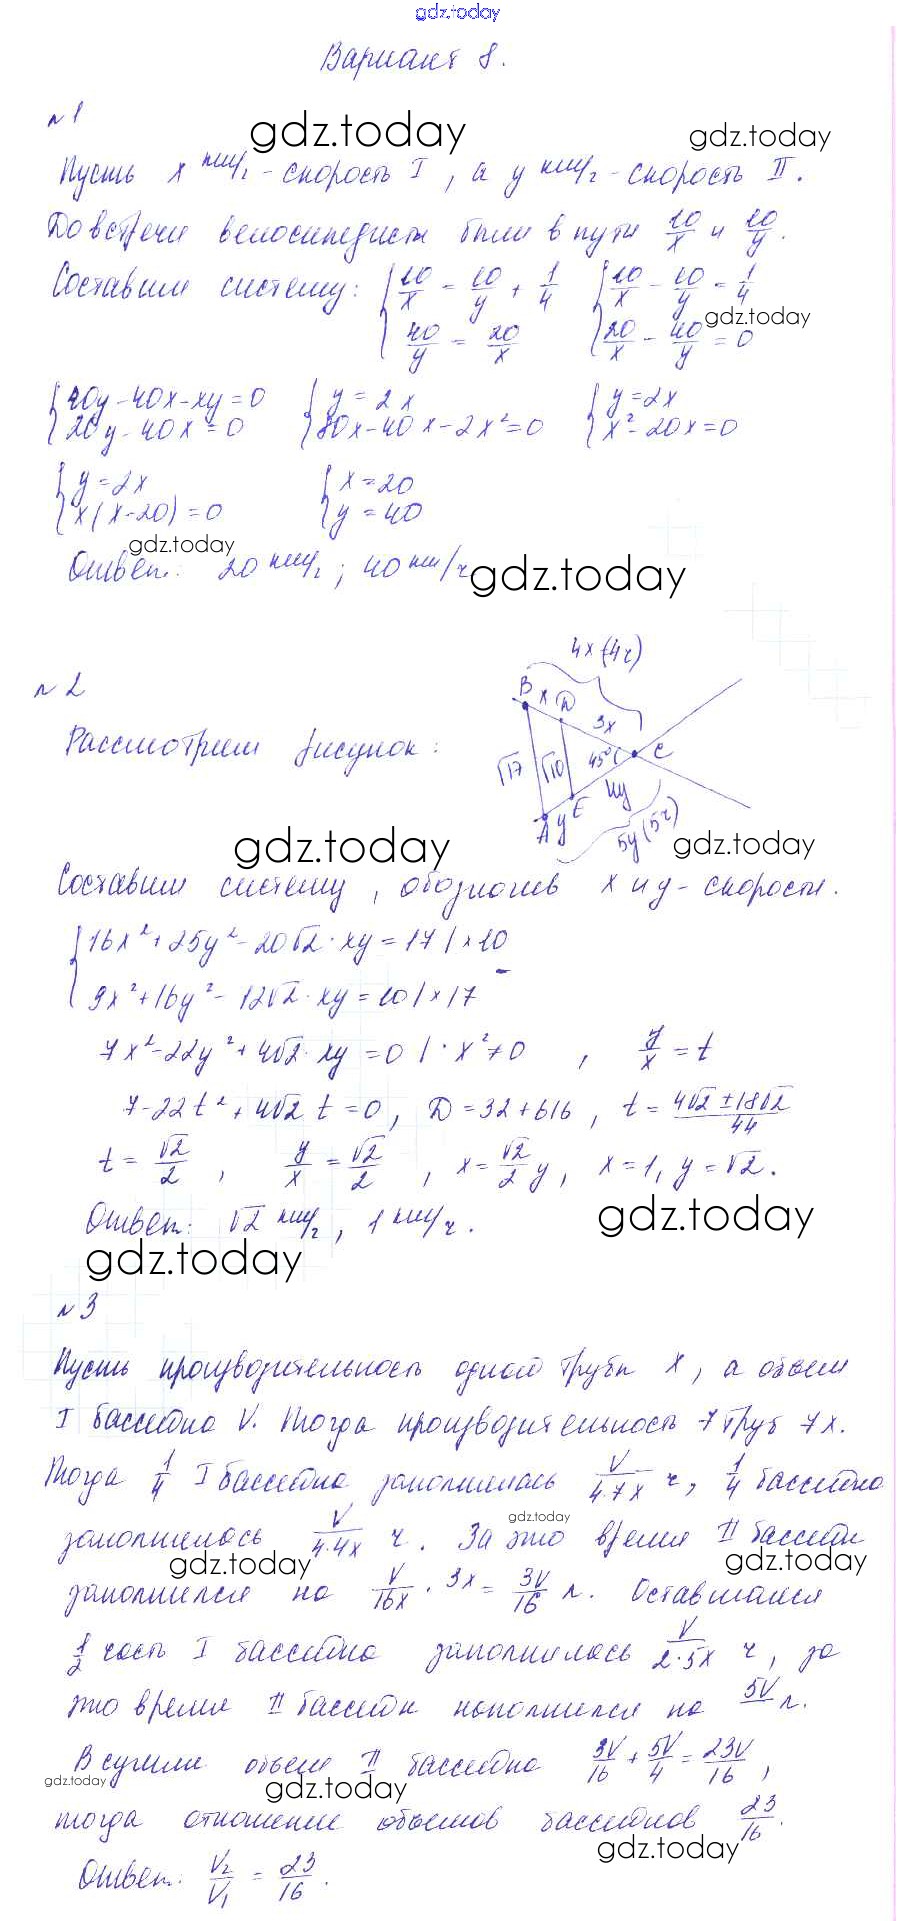 gdz.today
Вариант 8.
№1
gdz.today gdz.today
Пусть x км/ч - скорость I, а y км/ч - скорость II.
До встречи велосипедисты были в пути 10/x и 10/y.
Составим систему: { 10/x = 10/y + 1/4 { 10/x - 10/y = 1/4
40/y = 20/x 20/x - 40/y = 0
gdz.today
{ 40y - 40x - xy = 0 { y = 2x { y = 2x
20y - 40x = 0 80x - 40x - 2x² = 0 x² - 20x = 0
{ y = 2x { x = 20
x(x - 20) = 0 y = 40
gdz.today
Ответ: 20 км/ч; 40 км/ч
gdz.today
№2
4x (4ч)
B x D 3x
Рассмотрим рисунок:
√17 √10 45° C
A y E 4y
5y (5ч)
gdz.today gdz.today
Составим систему, обозначив x и y - скорости.
{ 16x² + 25y² - 20√2 · xy = 17 | × 10
9x² + 16y² - 12√2 · xy = 10 | × 17
7x² - 22y² + 4√2 · xy = 0 | · x² ≠ 0, y/x = t
7 - 22t² + 4√2 t = 0, D = 32 + 616, t = (4√2 ± 18√2)/44
t = √2/2, y/x = √2/2, x = √2/2 y, x = 1, y = √2.
Ответ: √2 км/ч, 1 км/ч.
gdz.today
gdz.today
№3
Пусть производительность одной трубы x, а объем
I бассейна V. Тогда производительность 7 труб 7x.
Тогда 1/4 I бассейна заполнилась V/(4·7x) ч, 1/4 бассейна
gdz.today
заполнилась V/(4·4x) ч. За это время II бассейн
gdz.today gdz.today
заполнился на V/16x · 3x = 3V/16 л. Оставшаяся
1/2 часть I бассейна заполнилась V/(2·5x) ч, за
это время II бассейн наполнился на 5V л.
В сумме объем II бассейна 3V/16 + 5V/4 = 23V/16,
gdz.today gdz.today
тогда отношение объемов бассейнов 23/16.
gdz.today
Ответ: V₂/V₁ = 23/16.